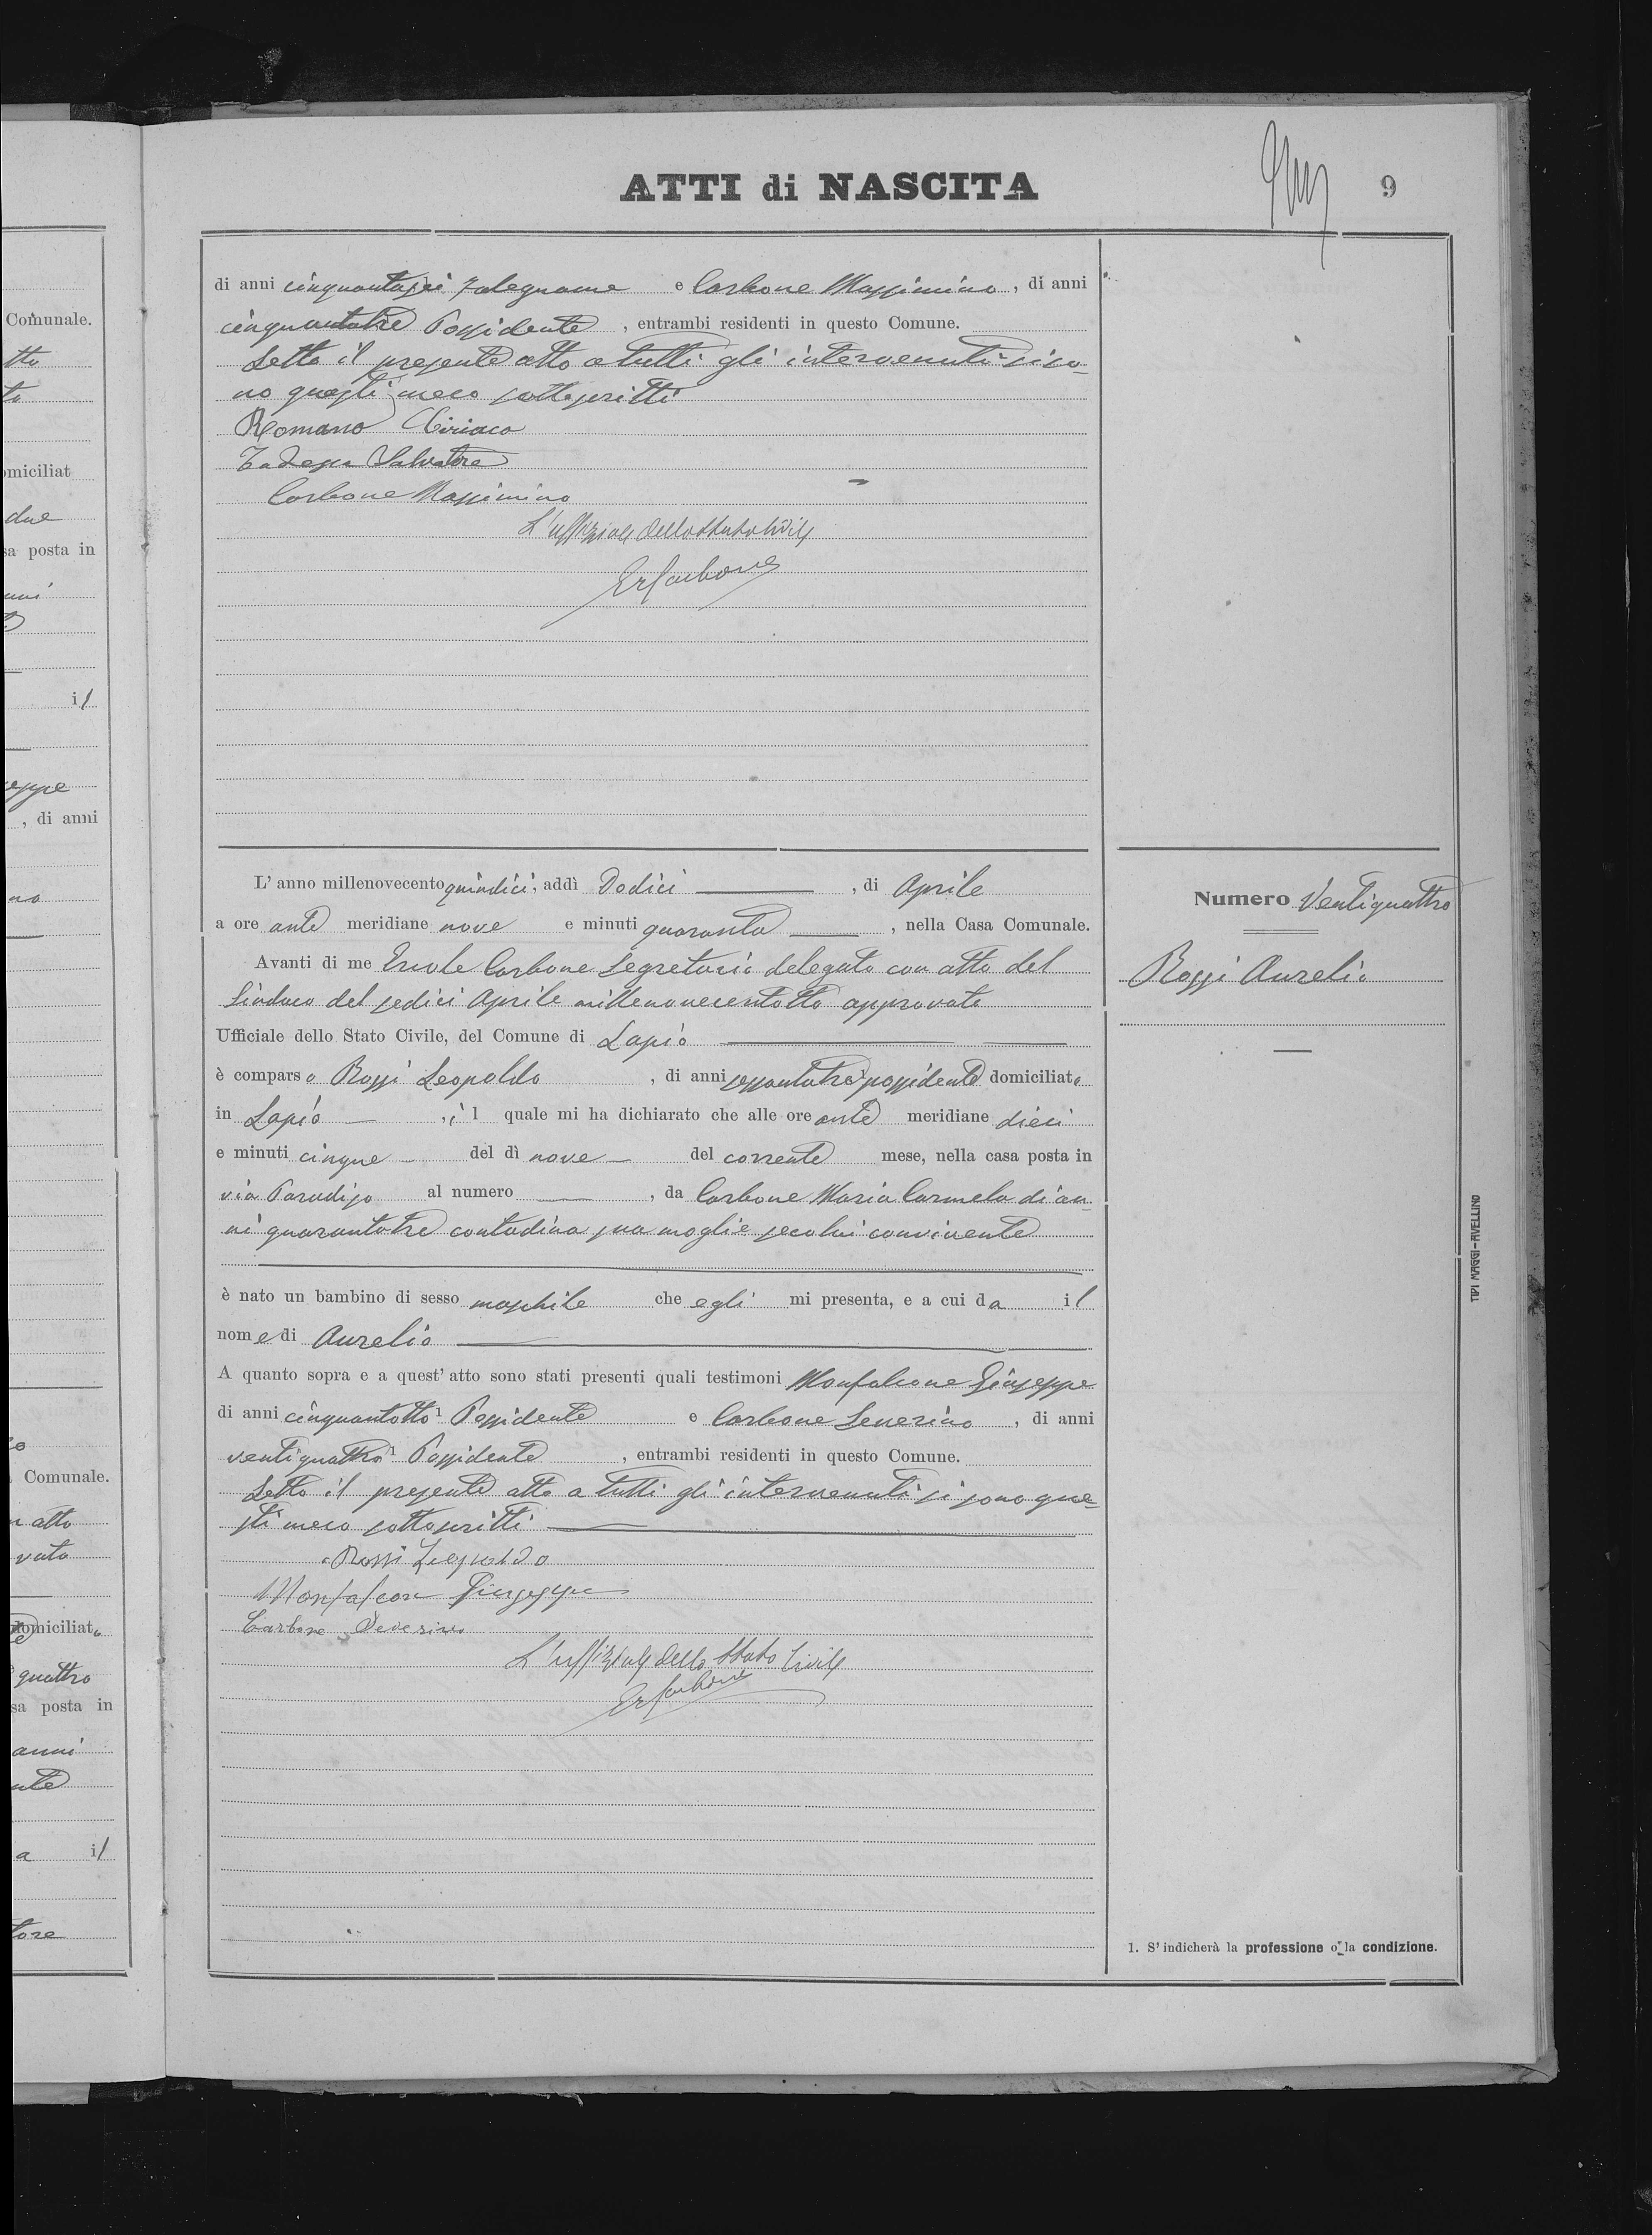 ATTI di NASCITA
9
di anni cinquantasei falegname e Carbone Massimino, di anni
cinquantatre Possidente, entrambi residenti in questo Comune.
Letto il presente atto a tutti gli intervenuti si so-
no questi meco sottoscritti
Romano Ciriaco
Tedesco Salvatore
Carbone Massimino
L'uffiziale dello Stato Civile
ErCarbone
L' anno millenovecento quindici, addì Dodici, di Aprile
a ore ante meridiane nove e minuti quaranta, nella Casa Comunale.
Avanti di me Ercole Carbone Segretario delegato con atto del
Sindaco del sedici Aprile millenovecentotto approvato
Ufficiale dello Stato Civile, del Comune di Lapio
è comparso Rossi Leopoldo, di anni sessantatre possidente domiciliato
in Lapio, il quale mi ha dichiarato che alle ore ante meridiane dieci
e minuti cinque del dì nove del corrente mese, nella casa posta in
via Paradiso al numero, da Carbone Maria Carmela di an-
ni quarantatre contadina sua moglie seco lui convivente
è nato un bambino di sesso maschile che egli mi presenta, e a cui da il
nome di Aurelio
A quanto sopra e a quest' atto sono stati presenti quali testimoni Monfalcone Giuseppe
di anni cinquantotto 1 Possidente e Carbone Severino, di anni
ventiquattro 1 Possidente, entrambi residenti in questo Comune.
Letto il presente atto a tutti gli intervenuti si sono que-
sti meco sottoscritti
Rossi Leopoldo
Monfalcon Giuseppe
Carbone Severino
L'uffiziale dello Stato Civile
ErCarbone
Numero Ventiquattro
Rossi Aurelio
1. S' indicherà la professione o la condizione.
TIPI MAGGI-AVELLINO
Comunale.
tto
to
omiciliat
due
sa posta in
il
seppe
, di anni
no
Comunale.
n atto
vato
domiciliato
quattro
sa posta in
anni
nte
a il
tore